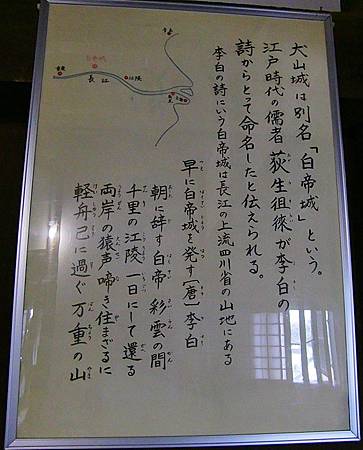 犬山城は別名「白帝城」という。
江戸時代の儒者 荻生徂徠が李白の
詩からとって命名したと伝えられる。
李白の詩にいう白帝城は長江の上流四川省の山地にある
早に白帝城を発す（唐）李白
朝に辞す白帝 彩雲の間
千里の江陵一日にして還る
両岸の猿声啼き住まざるに
軽舟已に過ぐ万重の山
白帝城
長江
江陵